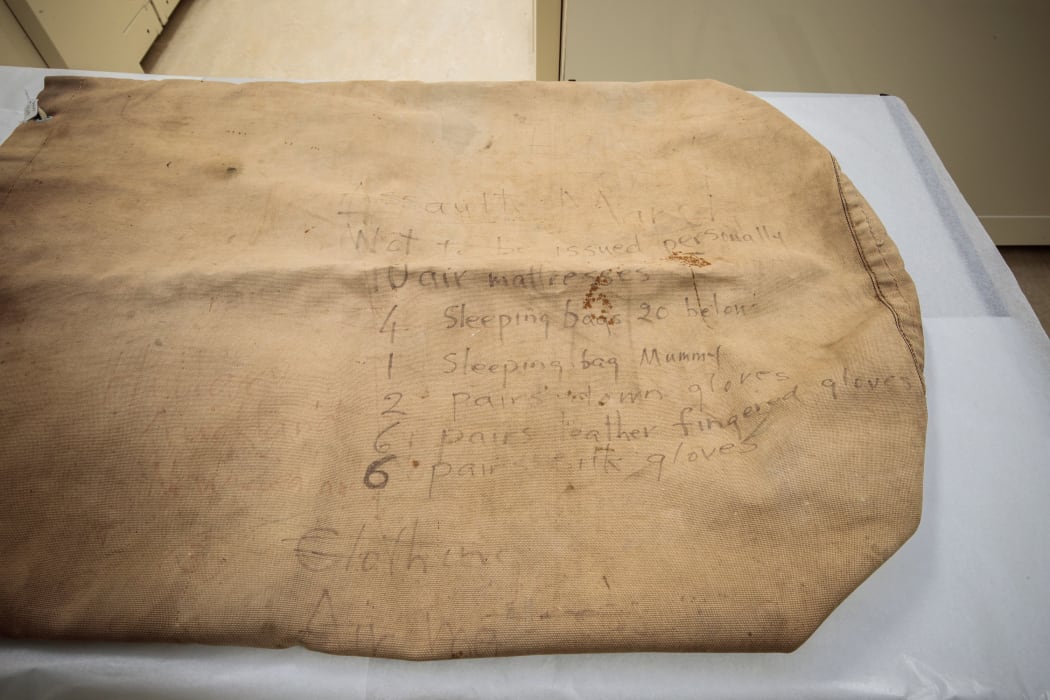 Assault
Not to be issued personally
10 air mattresses
4 Sleeping bags 20 below
1 Sleeping bag Mummy
2 pairs down gloves
6 pairs leather fingered gloves
6 pairs silk gloves
Clothing
Air